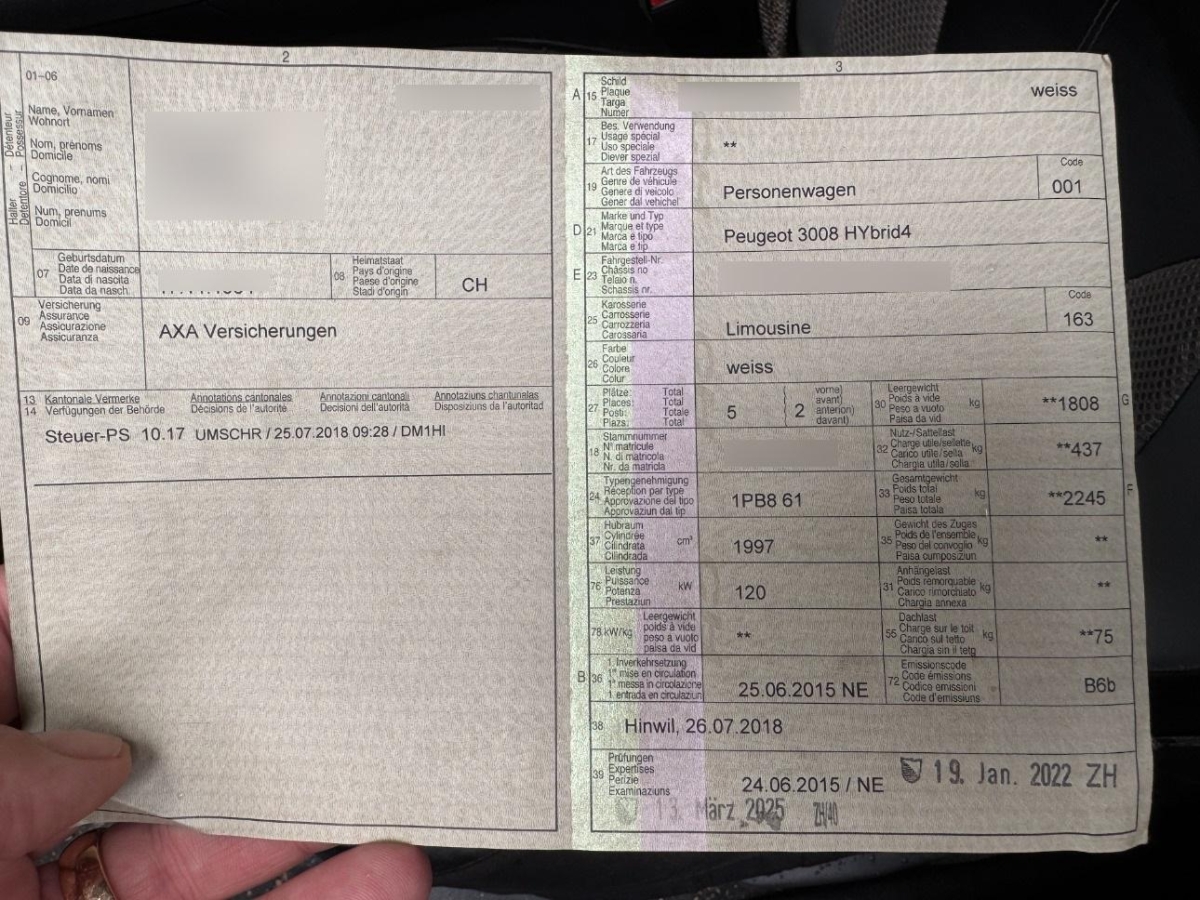 2
01–06
Halter – Détenteur
Detentore – Possessur
Name, Vornamen
Wohnort
Nom, prénoms
Domicile
Cognome, nomi
Domicilio
Num, prenums
Domicil
07
Geburtsdatum
Date de naissance
Data di nascita
Data da nasch.
08
Heimatstaat
Pays d'origine
Paese d'origine
Stadi d'origin
CH
09
Versicherung
Assurance
Assicurazione
Assicuranza
AXA Versicherungen
13 Kantonale Vermerke Annotations cantonales Annotazioni cantonali Annotaziuns chantunales
14 Verfügungen der Behörde Décisions de l'autorité Decisioni dell'autorità Disposiziuns da l'autoritad
Steuer-PS 10.17 UMSCHR / 25.07.2018 09:28 / DM1HI
3
A 15
Schild
Plaque
Targa
Numer
weiss
17
Bes. Verwendung
Usage spécial
Uso speciale
Diever spezial
**
19
Art des Fahrzeugs
Genre de véhicule
Genere di veicolo
Gener dal vehichel
Personenwagen
Code
001
D 21
Marke und Typ
Marque et type
Marca e tipo
Marca e tip
Peugeot 3008 HYbrid4
E 23
Fahrgestell-Nr.
Châssis no
Telaio n.
Schassis nr.
25
Karosserie
Carrosserie
Carrozzeria
Carossaria
Limousine
Code
163
26
Farbe
Couleur
Colore
Colur
weiss
27
Plätze: Total
Places: Total
Posti: Totale
Plazs: Total
5
2
vorne)
avant)
anterion)
davant)
30
Leergewicht
Poids à vide
Peso a vuoto
Paisa da vid
kg
**1808
G
18
Stammnummer
N° matricule
N. di matricola
Nr. da matricla
32
Nutz-/Sattellast
Charge utile/sellette
Carico utile/sella
Chargia utila/sella
kg
**437
24
Typengenehmigung
Réception par type
Approvazione del tipo
Approvaziun dal tip
1PB8 61
33
Gesamtgewicht
Poids total
Peso totale
Paisa totala
kg
**2245
F
37
Hubraum
Cylindrée
Cilindrata
Cilindrada
cm³
1997
35
Gewicht des Zuges
Poids de l'ensemble
Peso del convoglio
Paisa cumposiziun
kg
**
76
Leistung
Puissance
Potenza
Prestaziun
kW
120
31
Anhängelast
Poids remorquable
Carico rimorchiato
Chargia annexa
kg
**
78 kW/kg
Leergewicht
poids à vide
peso a vuoto
paisa da vid
**
55
Dachlast
Charge sur le toit
Carico sul tetto
Chargia sin il tetg
kg
**75
B 36
1. Inverkehrsetzung
1re mise en circulation
1a messa in circolazione
1. entrada en circulaziun
25.06.2015 NE
72
Emissionscode
Code émissions
Codice emissioni
Code d'emissiuns
B6b
38
Hinwil, 26.07.2018
39
Prüfungen
Expertises
Perizie
Examinaziuns
24.06.2015 / NE
19. Jan. 2022 ZH
13. März 2025 ZH/40